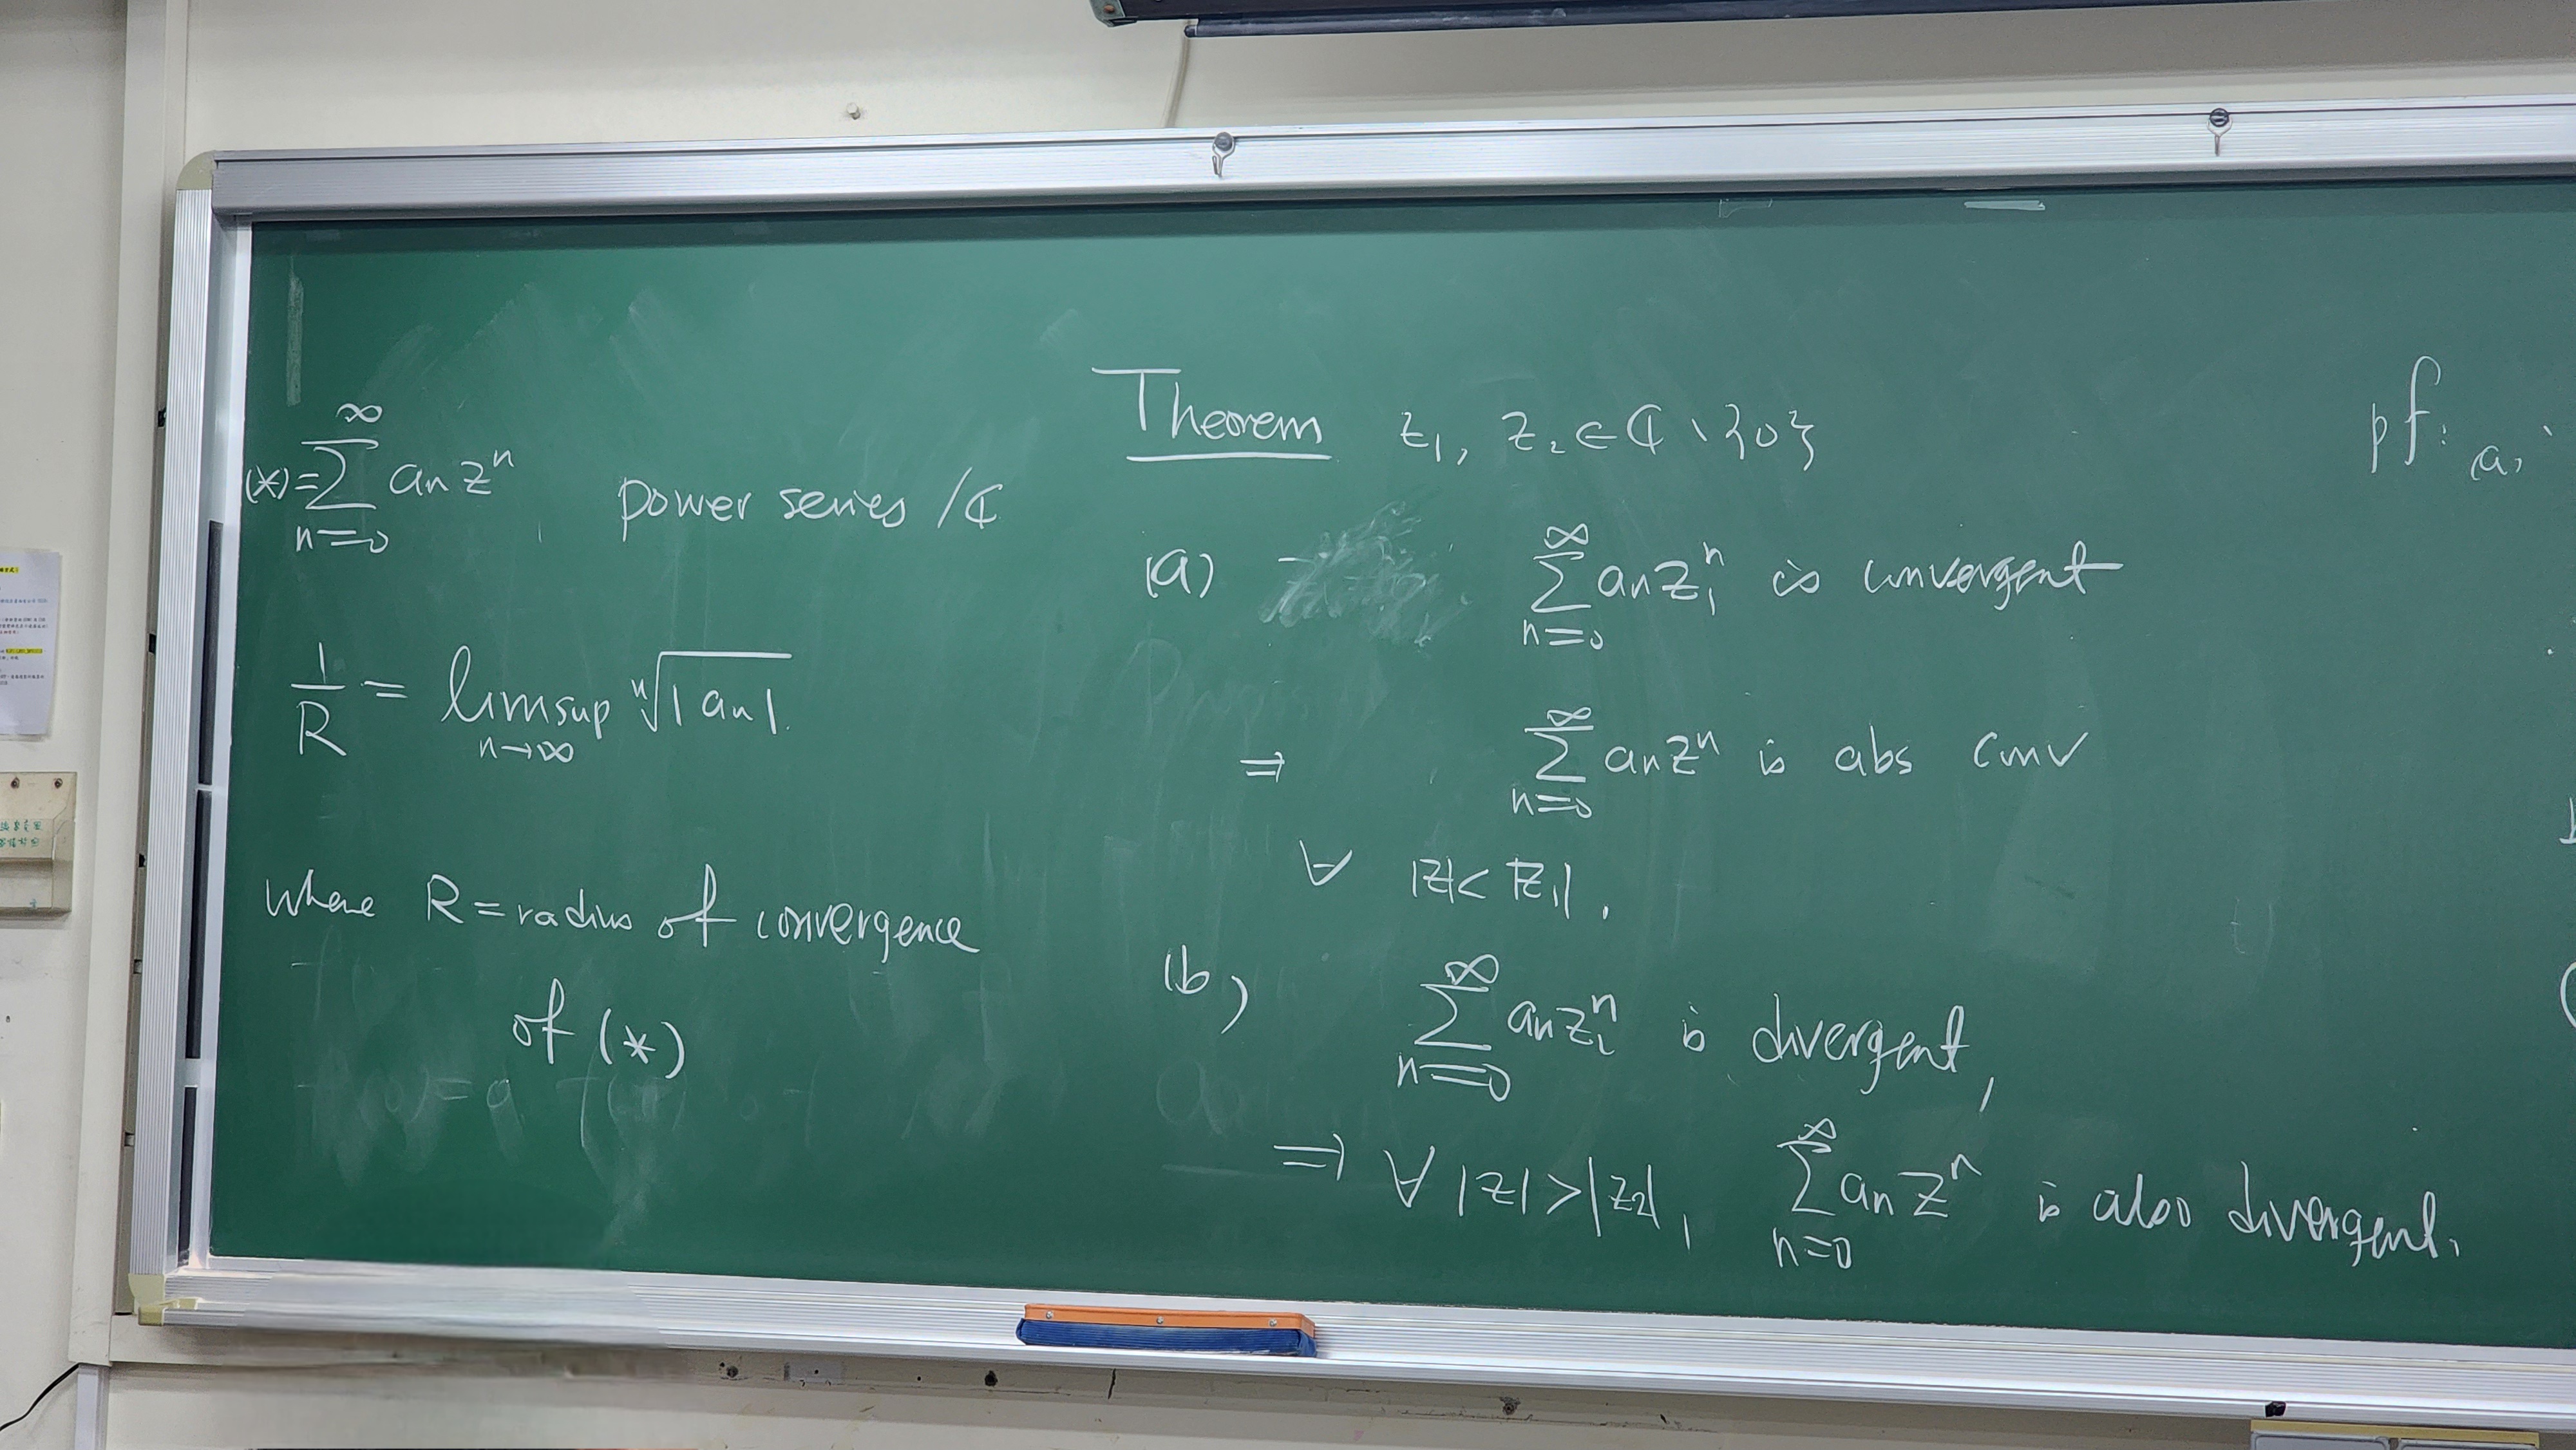 (*) = ∑_{n=0}^{∞} a_n z^n , power series /ℂ
1/R = limsup_{n→∞} ⁿ√|a_n|.
where R = radius of convergence
of (*)
Theorem z_1, z_2 ∈ ℂ \ {0}
(a) ∑_{n=0}^{∞} a_n z_1^n is convergent
⇒ ∑_{n=0}^{∞} a_n z^n is abs conv
∀ |z| < |z_1|.
(b) ∑_{n=0}^{∞} a_n z_2^n is divergent,
⇒ ∀ |z| > |z_2|, ∑_{n=0}^{∞} a_n z^n is also divergent.
pf: (a)